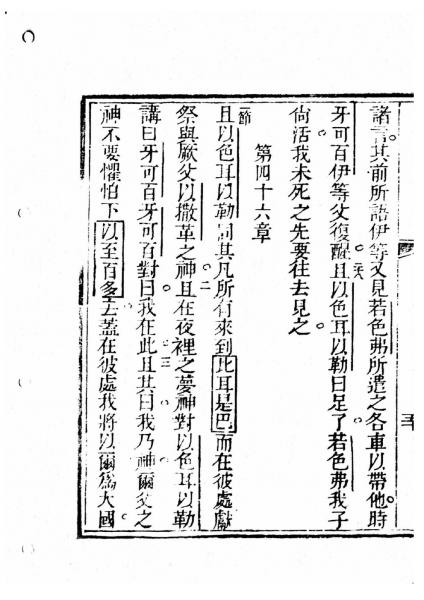 諸言。其前所語伊等又見若色弗所遣之各車以帶他。時
牙可百伊等父復醒。二八且以色耳以勒曰足了若色弗我子
尚活。我未死之先要往去見之。
第四十六章
一節且以色耳以勒同其凡所有來到比耳是巴而在彼處獻
祭與厥父以撒革之神。二且在夜裡之夢神對以色耳以勒
講曰牙可百牙可百對曰。我在此。三且其曰。我乃神爾父之
神不要懼怕下以至百多去。蓋在彼處我將以爾爲大國。